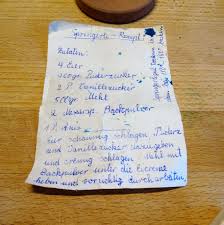 Springerle-Rezept
Zutaten:
4 Eier
500gr. Puderzucker
2 P. Vanillezucker
500gr. Mehl
Backpulver
1 P. Anis
Eier schaumig schlagen Puder u
und Vanillezucker dazugeben
und cremig schlagen. Mehl mit
Backpulver unter die Eicreme
heben und vorsichtig durcharbeiten,
Springerle